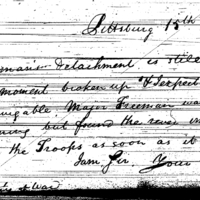 Pittsburg 15th
man's detachment is still
moment broken up & I expect
igable Major Freeman was
ing but found the river in
the Troops as soon as it
I am Sir Your
of War